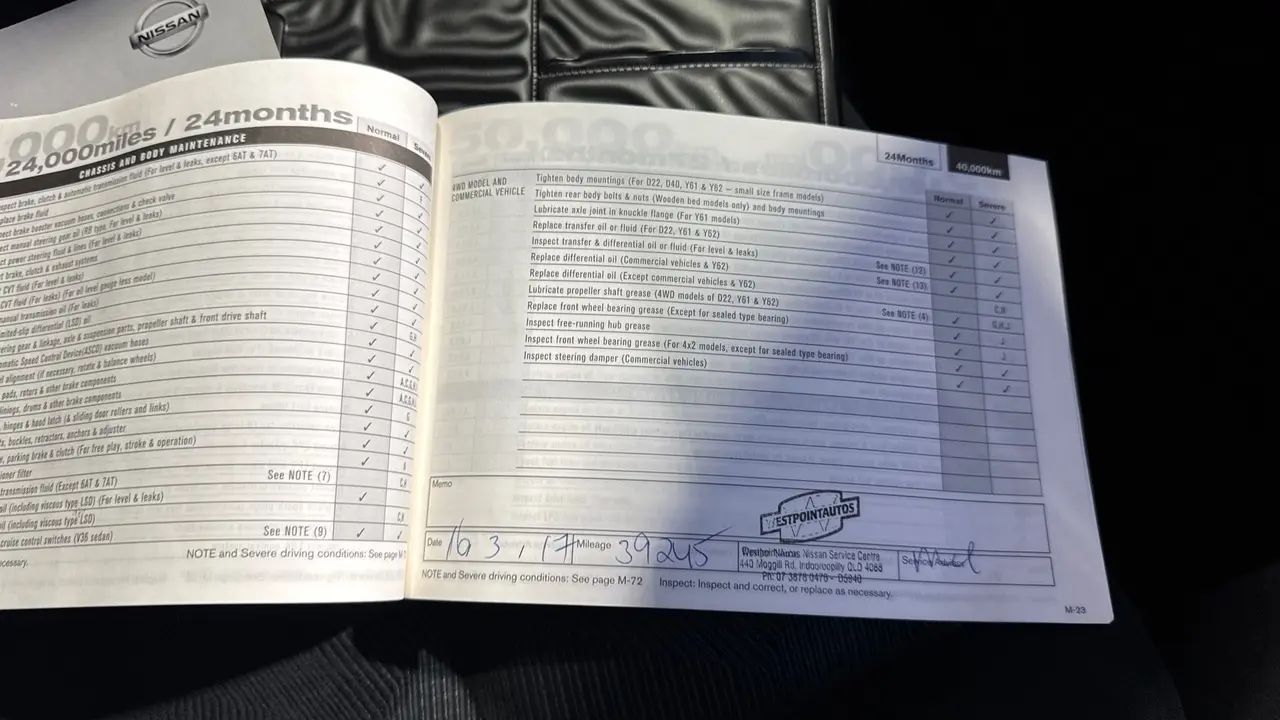 NISSAN
000km
24,000miles / 24months
CHASSIS AND BODY MAINTENANCE
Normal
Severe
spect brake, clutch & automatic transmission fluid (For level & leaks, except 6AT & 7AT)
place brake fluid
pect brake booster vacuum hoses, connections & check valve
ect manual steering gear oil (RB type, For level & leaks)
ct power steering fluid & lines (For level & leaks)
t brake, clutch & exhaust systems
CVT fluid (For level & leaks)
CVT fluid (For leaks) (For oil level gauge less model)
manual transmission oil (For leaks)
imited-slip differential (LSD) oil
ering gear & linkage, axle & suspension parts, propeller shaft & front drive shaft
G,H
omatic Speed Control Device(ASCD) vacuum hoses
el alignment (if necessary, rotate & balance wheels)
pads, rotors & other brake components
A,C,G,H
linings, drums & other brake components
A,C,G,H
, hinges & hood latch (& sliding door rollers and links)
G
ts, buckles, retractors, anchors & adjuster
e, parking brake & clutch (For free play, stroke & operation)
ioner filter
See NOTE (7)
transmission fluid (Except 6AT & 7AT)
C,H
oil (including viscous type LSD) (For level & leaks)
oil (including viscous type LSD)
See NOTE (9)
C,H
cruise control switches (V36 sedan)
NOTE and Severe driving conditions: See page M-7
ecessary.
24Months
40,000km
4WD MODEL AND
COMMERCIAL VEHICLE
Normal
Severe
Tighten body mountings (For D22, D40, Y61 & Y62 – small size frame models)
Tighten rear body bolts & nuts (Wooden bed models only) and body mountings
Lubricate axle joint in knuckle flange (For Y61 models)
Replace transfer oil or fluid (For D22, Y61 & Y62)
Inspect transfer & differential oil or fluid (For level & leaks)
Replace differential oil (Commercial vehicles & Y62)
See NOTE (12)
Replace differential oil (Except commercial vehicles & Y62)
See NOTE (13)
Lubricate propeller shaft grease (4WD models of D22, Y61 & Y62)
C,H
Replace front wheel bearing grease (Except for sealed type bearing)
See NOTE (4)
G,H,J
Inspect free-running hub grease
J
Inspect front wheel bearing grease (For 4x2 models, except for sealed type bearing)
J
Inspect steering damper (Commercial vehicles)
Memo
WESTPOINTAUTOS
Date 16 3, 17 Mileage 39245
Nissan Service Centre
443 Moggill Rd, Indooroopilly QLD 4068
Ph: 07 3878 0476 -
NOTE and Severe driving conditions: See page M-72
Inspect: Inspect and correct, or replace as necessary.
M-23